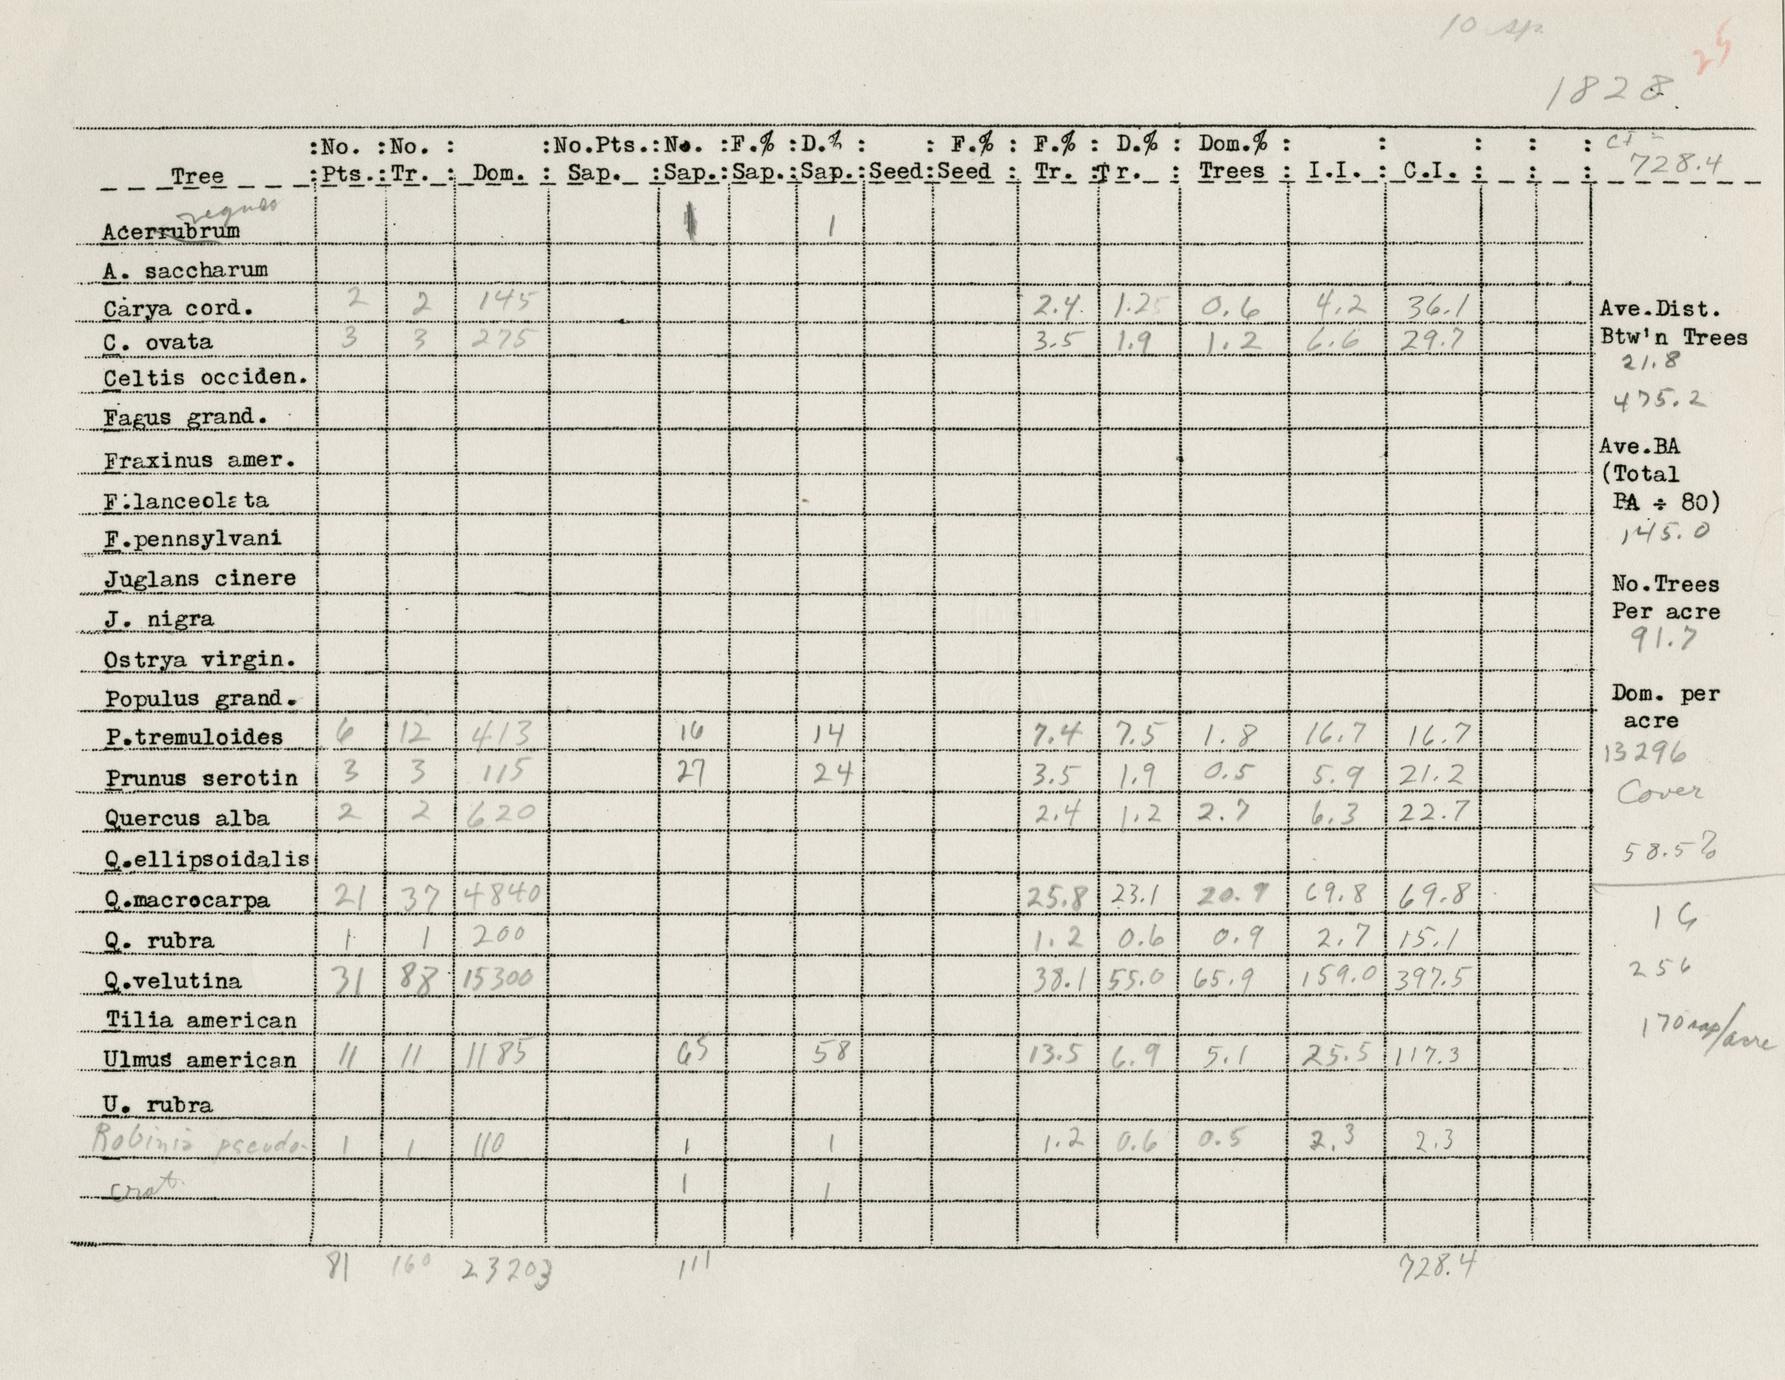 10 sp.
25
1828.
:No. :No. : :No.Pts.:No. :F.% :D.% : : F.% : F.% : D.% : Dom.% : : : : : CI =
Tree :Pts.:Tr. : Dom. : Sap. :Sap.:Sap.:Sap.:Seed:Seed : Tr. :Tr. : Trees : I.I. : C.I. : : : 728.4
negundo
Acerrubrum 1
A. saccharum
Carya cord. 2 2 145 2.4 1.25 0.6 4.2 36.1
C. ovata 3 3 275 3.5 1.9 1.2 6.6 29.7
Celtis occiden.
Fagus grand.
Fraxinus amer.
F.lanceolata
F.pennsylvani
Juglans cinere
J. nigra
Ostrya virgin.
Populus grand.
P.tremuloides 6 12 413 16 14 7.4 7.5 1.8 16.7 16.7
Prunus serotin 3 3 115 27 24 3.5 1.9 0.5 5.9 21.2
Quercus alba 2 2 620 2.4 1.2 2.7 6.3 22.7
Q.ellipsoidalis
Q.macrocarpa 21 37 4840 25.8 23.1 20.9 69.8 69.8
Q. rubra 1 1 200 1.2 0.6 0.9 2.7 15.1
Q.velutina 31 88 15300 38.1 55.0 65.9 159.0 397.5
Tilia american
Ulmus american 11 11 1185 65 58 13.5 6.9 5.1 25.5 117.3
U. rubra
Robinia pseudo- 1 1 110 1 1 1.2 0.6 0.5 2.3 2.3
crat. 1 1
81 160 23203 111 728.4
Ave.Dist.
Btw'n Trees
21.8
475.2
Ave.BA
(Total
BA ÷ 80)
145.0
No.Trees
Per acre
91.7
Dom. per
acre
13296
Cover
58.5%
16
256
170 sap/acre